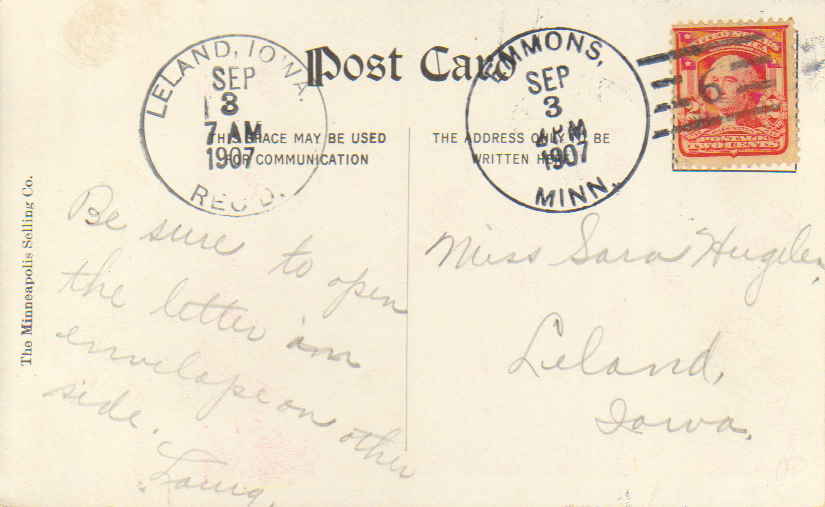 Post Card
LELAND, IOWA.
SEP
3
7 AM
1907
REC'D.
EMMONS,
SEP
3
PM
1907
MINN.
6
POSTAGE
TWO CENTS
THIS SPACE MAY BE USED
FOR COMMUNICATION
THE ADDRESS ONLY TO BE
WRITTEN HERE
The Minneapolis Selling Co.
Be sure
to open
the letter
envelape on other
side.
Miss Sara
Leland,
Iowa.